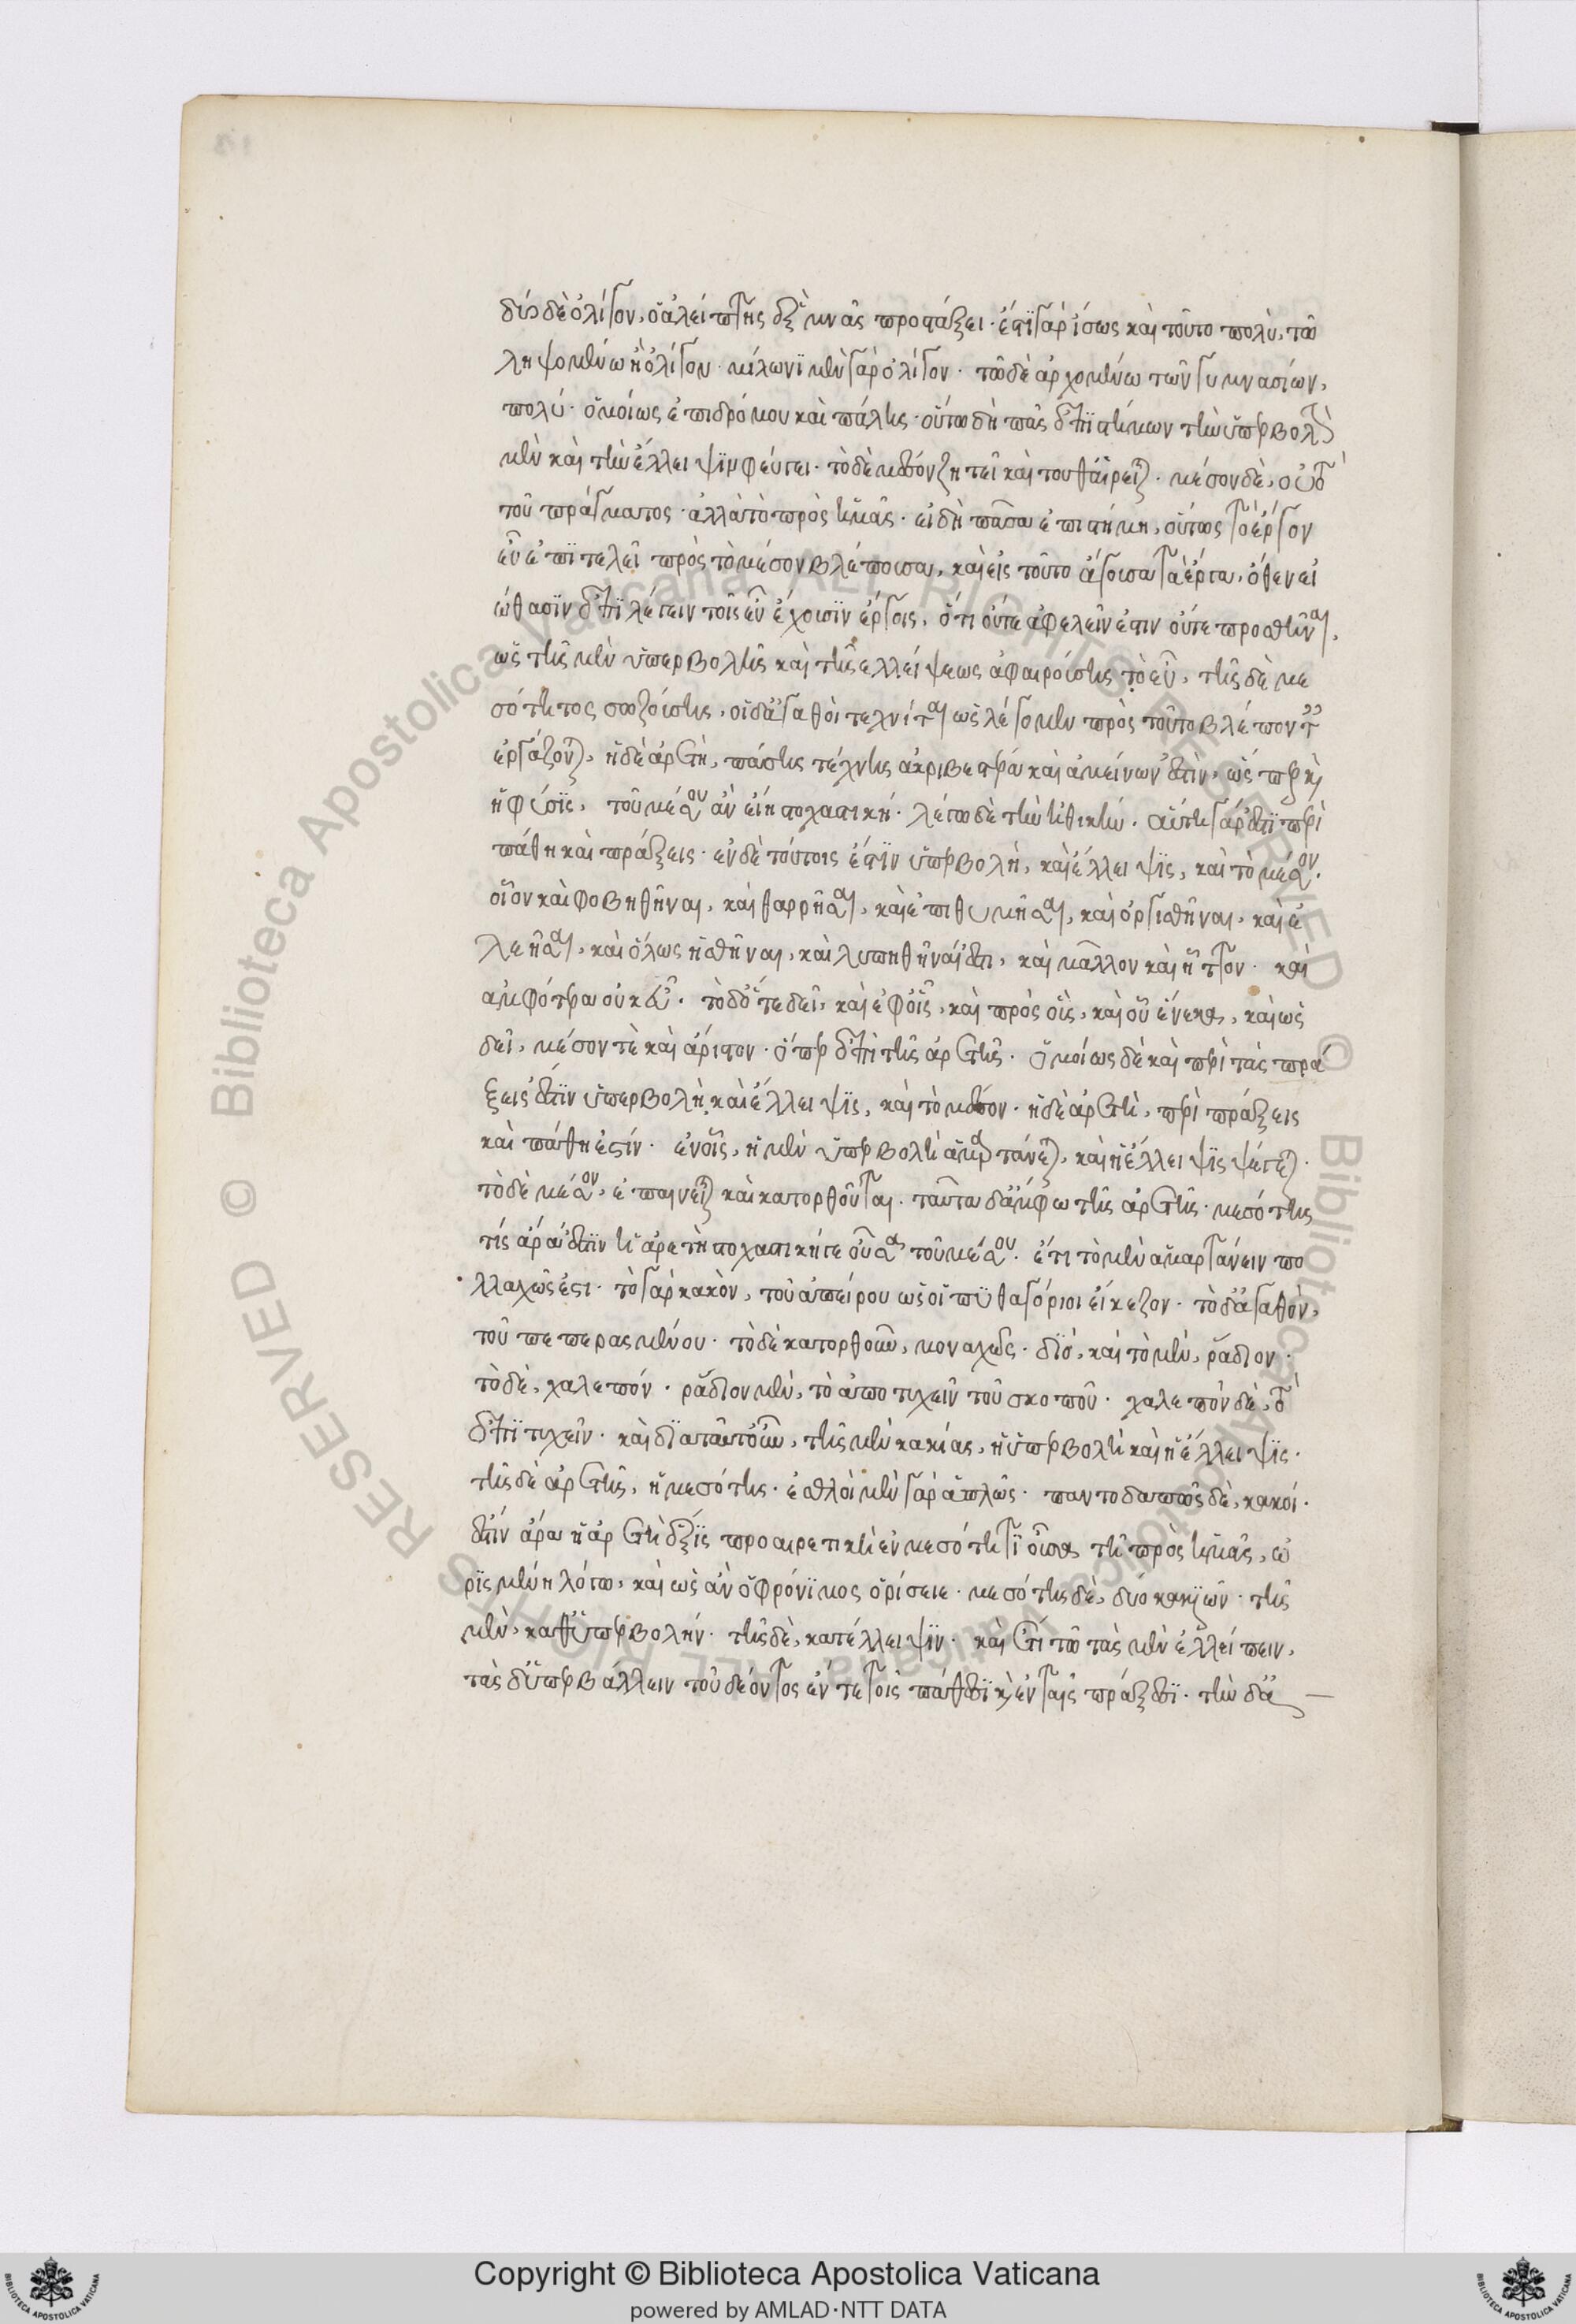 δύο δὲ ὀλίγον, ὁ ἀλείπτης ἓξ μνᾶς προστάξει· ἔστι γὰρ ἴσως καὶ τοῦτο πολὺ, τῶ
ληψομένω ἢ ὀλίγον· μίλωνι μὲν γὰρ ὀλίγον· τῶ δὲ ἀρχομένω τῶν γυμνασίων,
πολύ· ὁμοίως ἐπὶ δρόμου καὶ πάλης· οὕτω δὴ πᾶς ἐπιστήμων τὴν ὑπερβολὴν
μὲν καὶ τὴν ἔλλειψιν φεύγει· τὸ δὲ μέσον ζητεῖ καὶ τοῦθ' αἱρεῖται· μέσον δὲ, οὐ τὸ
τοῦ πράγματος ἀλλὰ τὸ πρὸς ἡμᾶς· εἰ δὴ πᾶσα ἐπιστήμη, οὕτως τὸ ἔργον
εὖ ἐπιτελεῖ πρὸς τὸ μέσον βλέπουσα, καὶ εἰς τοῦτο ἄγουσα τὰ ἔργα, ὅθεν εἰ
ώθασιν ἐπιλέγειν τοῖς εὖ ἔχουσιν ἔργοις, ὅτι οὔτε ἀφελεῖν ἔστιν οὔτε προσθεῖναι,
ὡς τῆς μὲν ὑπερβολῆς καὶ τῆς ἐλλείψεως ἀφαιρούσης τὸ εὖ, τῆς δὲ με
σότητος σωζούσης, οἱ δ' ἀγαθοὶ τεχνίται ὡς λέγομεν πρὸς τοῦτο βλέποντες
ἐργάζονται, ἡ δὲ ἀρετὴ, πάσης τέχνης ἀκριβεστέρα καὶ ἀμείνων ἐστὶν, ὥσπερ καὶ
ἡ φύσις, τοῦ μέσου ἂν εἴη στοχαστική· λέγω δὲ τὴν ἠθικήν· αὕτη γάρ ἐστι περὶ
πάθη καὶ πράξεις· ἐν δὲ τούτοις ἔστιν ὑπερβολὴ, καὶ ἔλλειψις, καὶ τὸ μέσον·
οἷον καὶ φοβηθῆναι, καὶ θαρρῆσαι, καὶ ἐπιθυμῆσαι, καὶ ὀργισθῆναι, καὶ ἐ
λεῆσαι, καὶ ὅλως ἡσθῆναι, καὶ λυπηθῆναί ἐστι, καὶ μᾶλλον καὶ ἧττον· καὶ
ἀμφότερα οὐκ εὖ· τὸ δ' ὅτε δεῖ, καὶ ἐφ' οἷς, καὶ πρὸς οὓς, καὶ οὗ ἕνεκα, καὶ ὡς
δεῖ, μέσον τὲ καὶ ἄριστον· ὅπερ ἐστὶ τῆς ἀρετῆς· ὁμοίως δὲ καὶ περὶ τὰς πρά
ξεις ἐστὶν ὑπερβολὴ καὶ ἔλλειψις, καὶ τὸ μέσον· ἡ δὲ ἀρετὴ, περὶ πράξεις
καὶ πάθη ἐστίν· ἐν οἷς, ἡ μὲν ὑπερβολὴ ἁμαρτάνεται, καὶ ἡ ἔλλειψις ψέγεται·
τὸ δὲ μέσον, ἐπαινεῖται καὶ κατορθοῦται· ταῦτα δ' ἄμφω τῆς ἀρετῆς· μεσότης
τίς ἄρα ἐστὶν ἡ ἀρετὴ στοχαστική γε οὖσα τοῦ μέσου· ἔτι τὸ μὲν ἁμαρτάνειν πο
λλαχῶς ἐστι· τὸ γὰρ κακὸν, τοῦ ἀπείρου ὡς οἱ πυθαγόριοι εἴκαζον· τὸ δ' ἀγαθὸν,
τοῦ πεπερασμένου· τὸ δὲ κατορθοῦν, μοναχῶς· διό, καὶ τὸ μὲν, ῥάδιον·
τὸ δὲ, χαλεπόν· ῥάδιον μὲν, τὸ ἀποτυχεῖν τοῦ σκοποῦ· χαλεπὸν δὲ, τὸ
ἐπιτυχεῖν· καὶ διὰ ταῦτ' οὖν, τῆς μὲν κακίας, ἡ ὑπερβολὴ καὶ ἡ ἔλλειψις·
τῆς δὲ ἀρετῆς, ἡ μεσότης· ἐσθλοὶ μὲν γὰρ ἁπλῶς· παντοδαπῶς δὲ, κακοί·
ἔστιν ἄρα ἡ ἀρετὴ ἕξις προαιρετικὴ ἐν μεσότητι οὖσα τῆ πρὸς ἡμᾶς, ὡ
ρισμένη λόγω, καὶ ὡς ἂν ὁ φρόνιμος ὁρίσειε· μεσότης δὲ, δύο κακιῶν· τῆς
μὲν, καθ' ὑπερβολήν· τῆς δὲ, κατ' ἔλλειψιν· καὶ ἔτι τῶ τὰς μὲν ἐλλείπειν,
τὰς δ' ὑπερβάλλειν τοῦ δέοντος ἔν τε τοῖς πάθεσι καὶ ἐν ταῖς πράξεσι· τὴν δ' ἀ